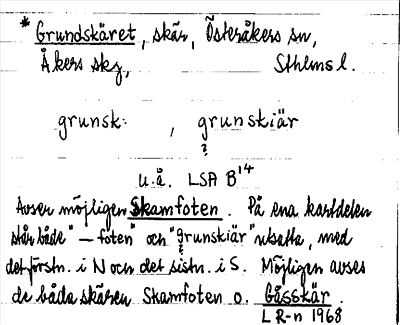 * Grundskäret, skär, Österåkers sn,
Åkers skg, Sthlms l.
grunsk: , grunskiär
?
u.å. LSA B¹⁴
Avser möjligen Skamfoten. På ena kartdelen
står både "–foten" och "grunskiär" utsatta, med
?
det förstn. i N och det sistn. i S. Möjligen avses
de båda skären Skamfoten o. Gåsskär.
L R-n 1968